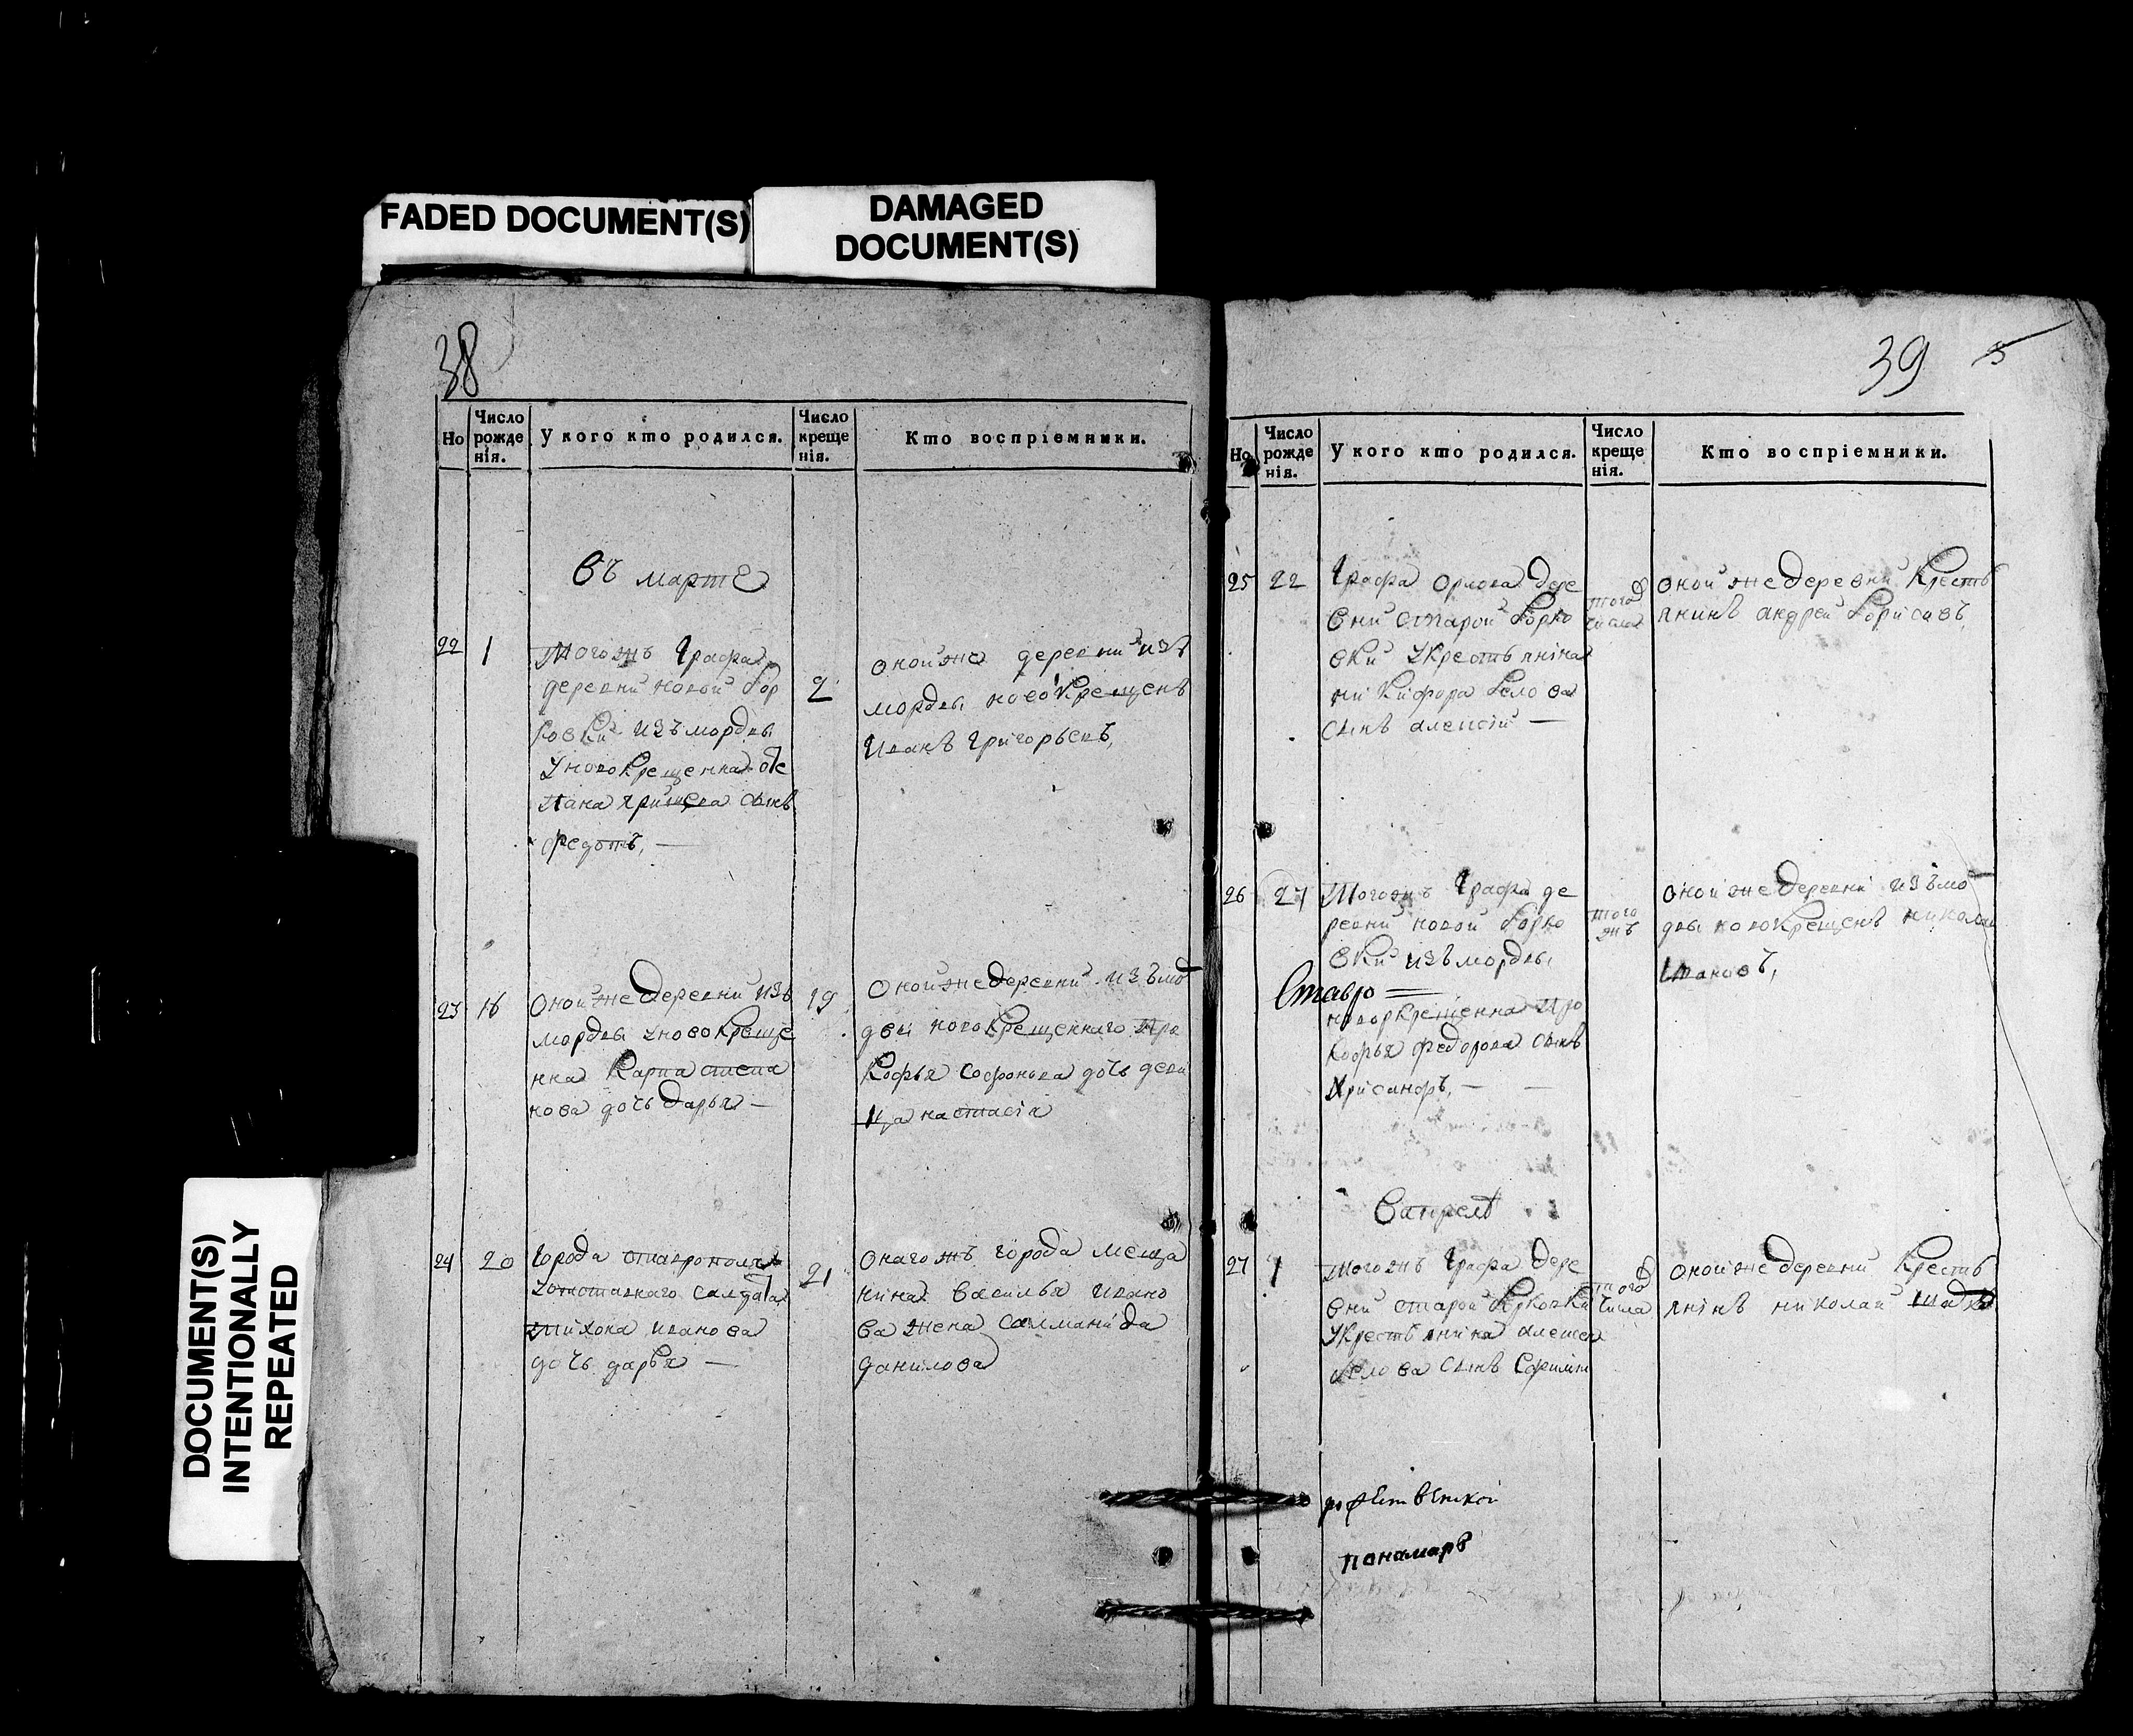 FADED DOCUMENT(S)
DAMAGED
DOCUMENT(S)
DOCUMENT(S)
INTENTIONALLY
REPEATED
38
Но
Число
рожде
нія.
У кого кто родился.
Число
креще
нія.
Кто воспріемники.
въ марте
22
1
Тогожъ Графа
деревни новой бор
ковки изъ мордвы
у новокрещенна сте
пана сынъ
федотъ,
2
оной же деревни изъ
мордвы новокрещенъ
Иванъ Григорьевъ,
23
16
Оной же деревни изъ
мордвы у новокреще
нна Карпа степа
нова дочь дарья
19
Оной же деревни изъ мо
двы новокрещеннаго про
кофья софронова дочь деви
ца настасіа
24
20
Города ставрополя
у отставнаго салдата
тихона иванова
дочь дарья
21
Онагожъ города меща
нина василья ивано
ва жена саламанида
данилова
39
5
Но
Число
рожде
нія.
У кого кто родился.
Число
креще
нія.
Кто воспріемники.
25
22
Графа орлова дере
вни старой борко
вки у крестьянина
никифора белова
сынъ алексій
того
числа
оной же деревни кресть
янинъ андрей борисовъ,
26
27
Тогожъ Графа де
ревни новой борко
вки изъ мордвы
Ставро
новокрещенна про
кофья федорова сынъ
хрисанфъ,
того
жъ
оной же деревни изъ мо
двы новокрещенъ николай
ивановъ,
в апреле
27
1
тогожъ Графа дере
вни старой борковки
у крестьянина алексея
белова сынъ
того
числа
оной же деревни кресть
янинъ николай
пономарь